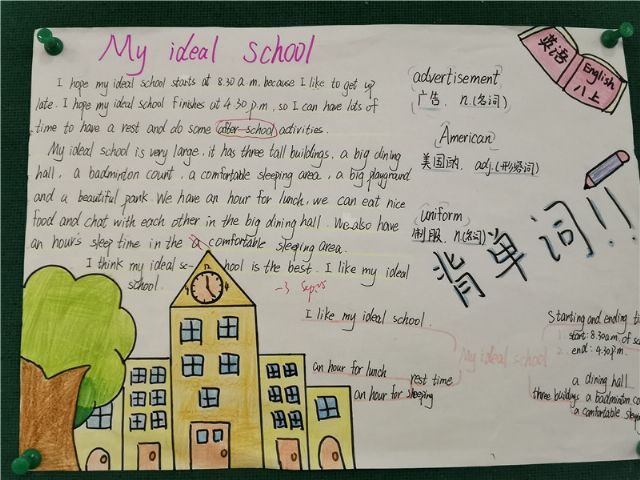 My ideal school
I hope my ideal school starts at 8.30 a.m. because I like to get up
late. I hope my ideal school finishes at 4.30 p.m, so I can have lots of
time to have a rest and do some after-school activities.
My ideal school is very large, it has three tall buildings, a big dining
hall, a badminton count, a comfortable sleeping area, a big playground
and a beautiful pank. We have an hour for lunch, we can eat nice
food and chat with each other in the big dining hall. We also have
an hour's sleep time in the a comfortable sleeping area.
I think my ideal sc-hool is the best. I like my ideal
school.
-3
英语
English
八上
advertisement
广告. n.(名词)
American
美国的. adj.(形容词)
uniform
制服. n.(名词)
背单词!!
I like my ideal school.
an hour for lunch
rest time
an hour for sleeping
My ideal school
Starting and ending
start: 8.30am. of
end: 4.30p.m.
a dining hall
three buildings a badminton
a comfortable